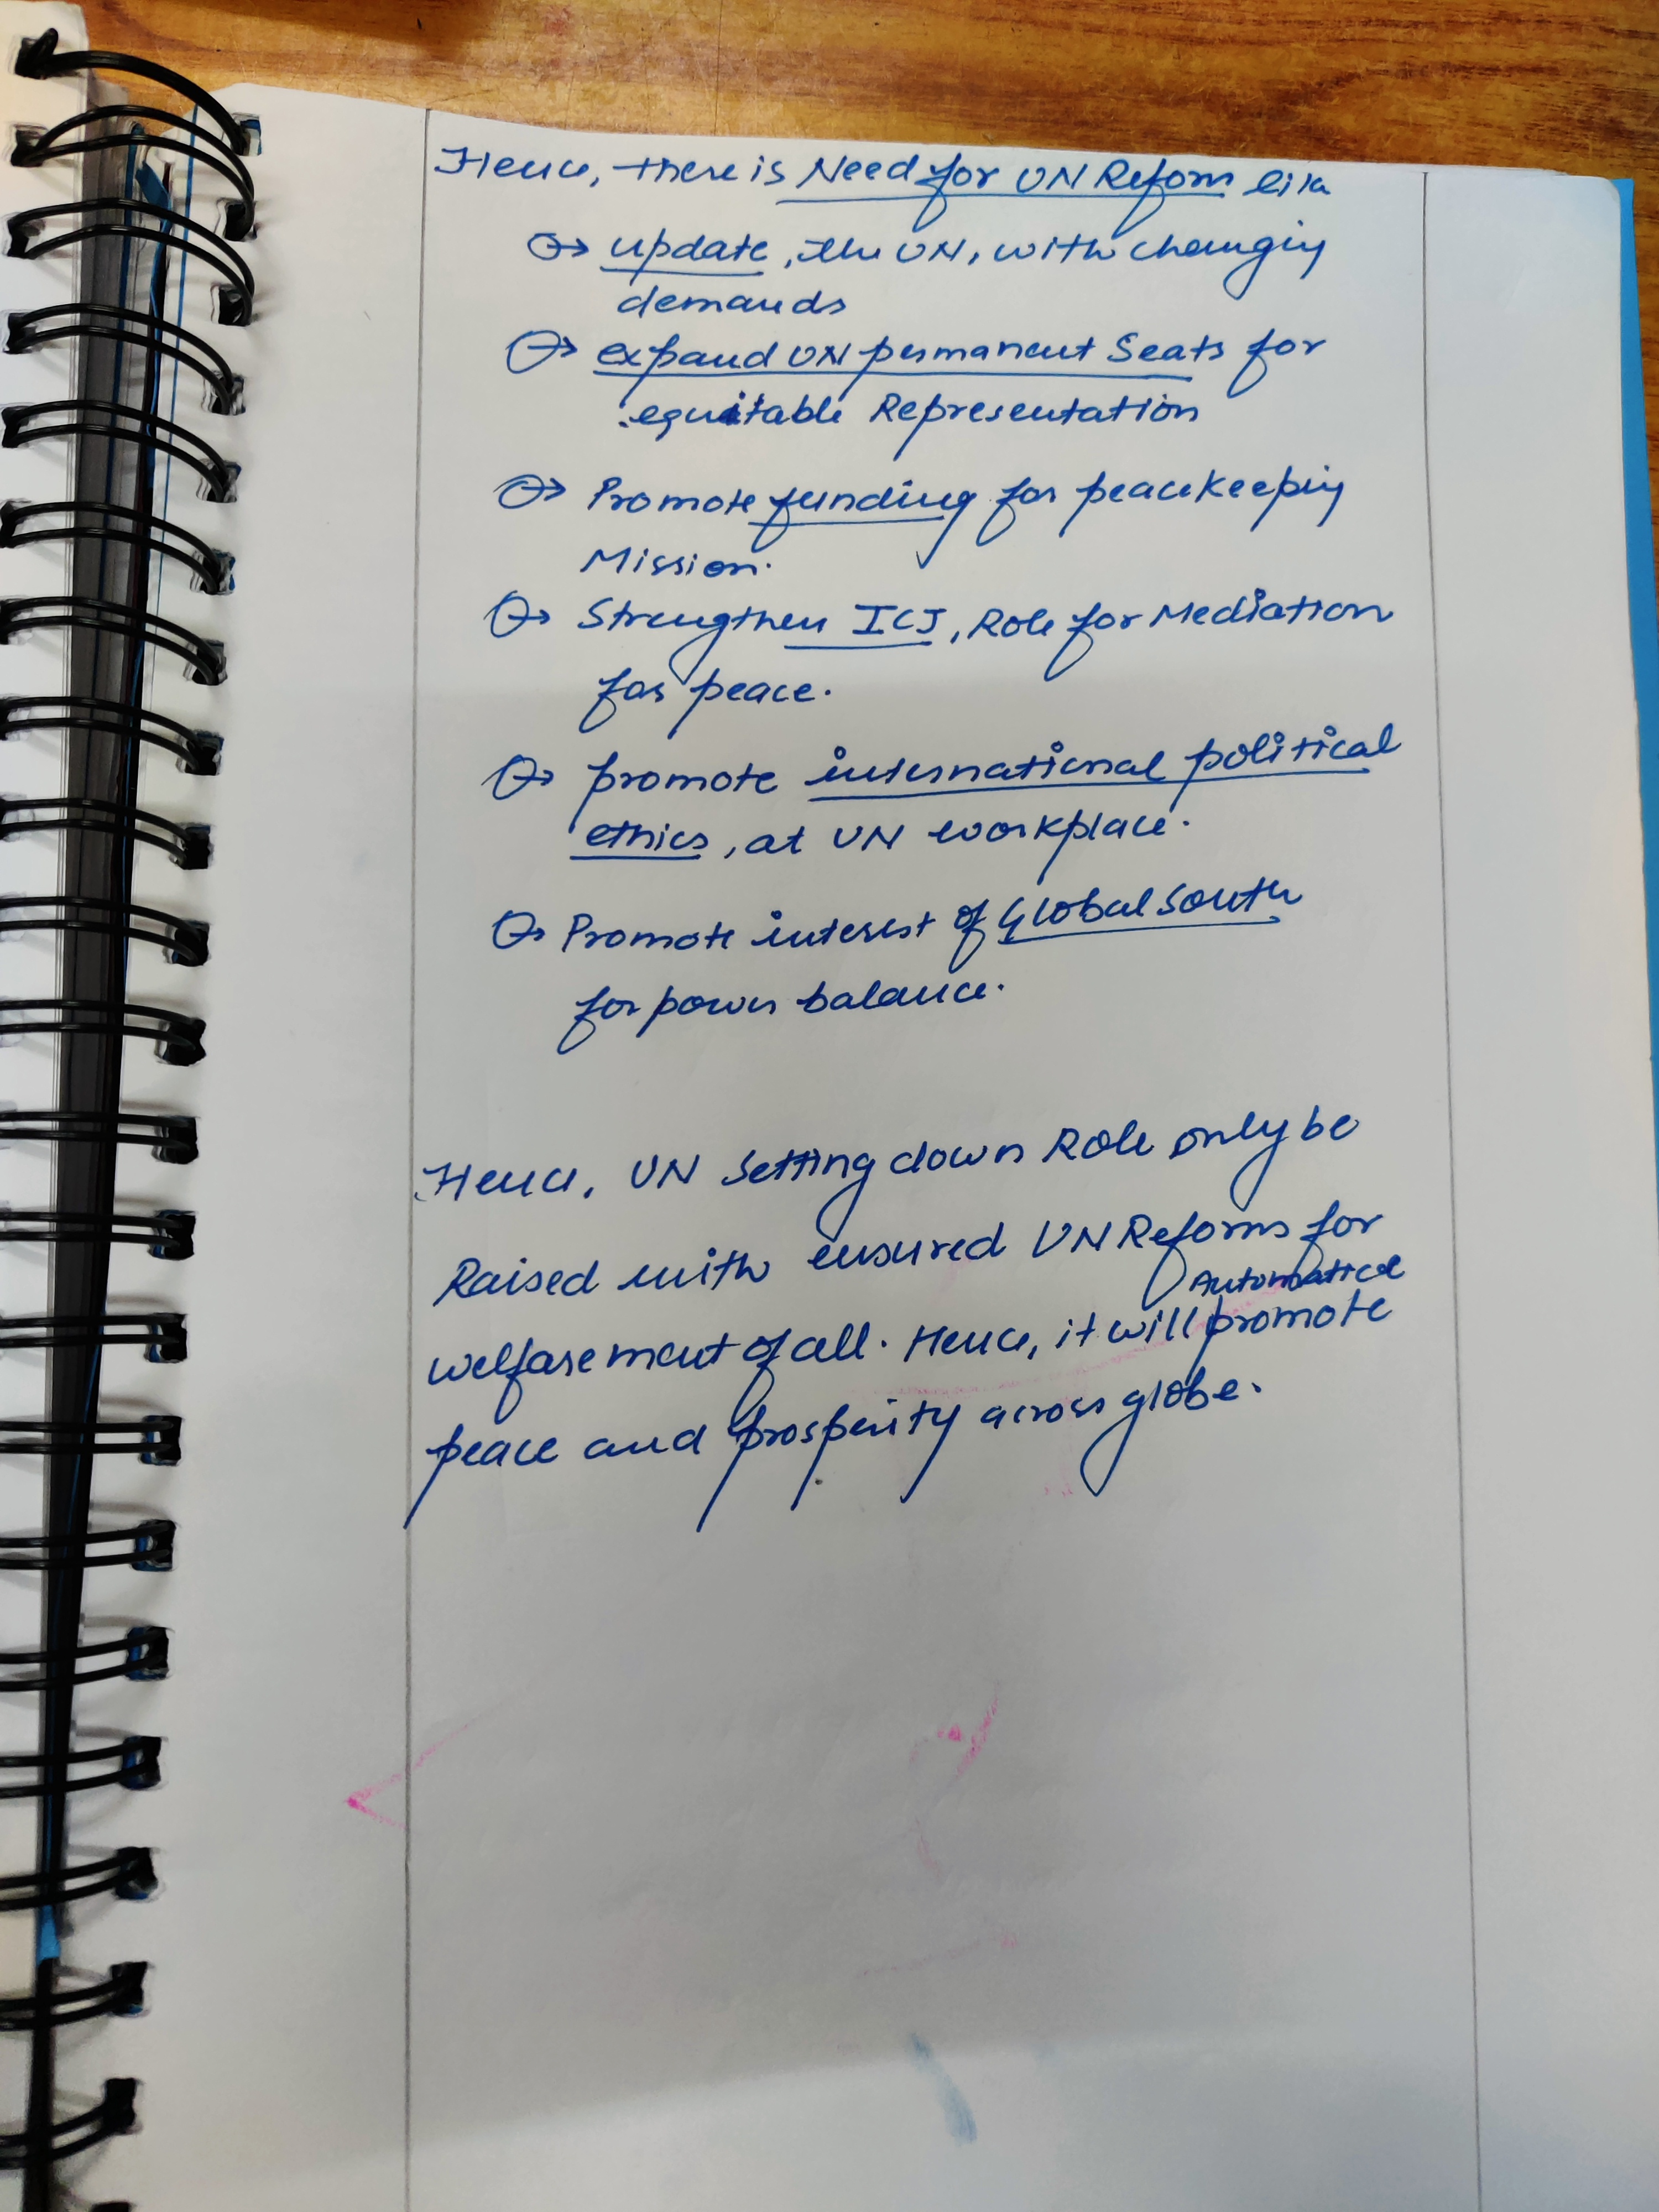 Hence, there is Need for UN Reform like
update, the UN, with changing
demands
expand UN permanent Seats for
equitable Representation
Promote funding for peacekeeping
Mission.
Strengthen ICJ, Role for Mediation
for peace.
promote international political
ethics, at UN workplace.
Promote interest of Global South
for power balance.
Hence, UN Setting down Role only be
Raised with ensured UN Reforms for
welfarement of all. Hence, it will Automatical promote
peace and prosperity across globe.